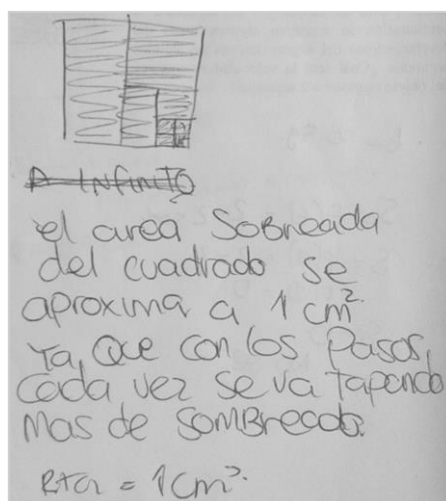 A INFINITO
el area SoBreada
del cuadrado se
aproxima a 1 cm².
Ya, Que con los Pasos,
Cada vez se va tapando
Mas de SOMBreado.
Rta = 1 cm².